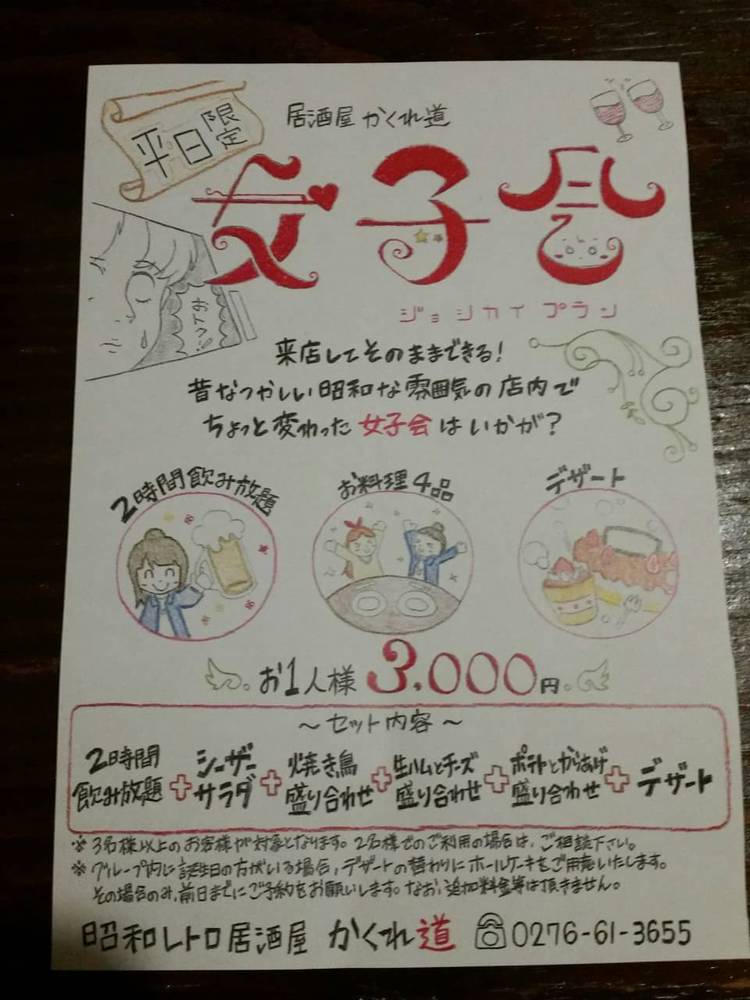 平日限定
居酒屋 かくれ道
女子会
ジョシカイ プラン
おトク!!
来店してそのままできる!
昔なつかしい昭和な雰囲気の店内で
ちょっと変わった女子会はいかが?
2時間飲み放題
お料理4品
デザート
お1人様 3,000円。
〜セット内容〜
2時間飲み放題+シーザーサラダ+焼き鳥盛り合わせ+生ハムとチーズ盛り合わせ+ポテトとからあげ盛り合わせ+デザート
※3名様以上のお客様が対象となります。2名様でのご利用の場合は、ご相談下さい。
※グループ内に誕生日の方がいる場合、デザートの替わりにホールケーキをご用意いたします。
その場合のみ、前日までにご予約をお願いします。なお、追加料金等は頂きません。
昭和レトロ居酒屋 かくれ道 ☎0276-61-3655